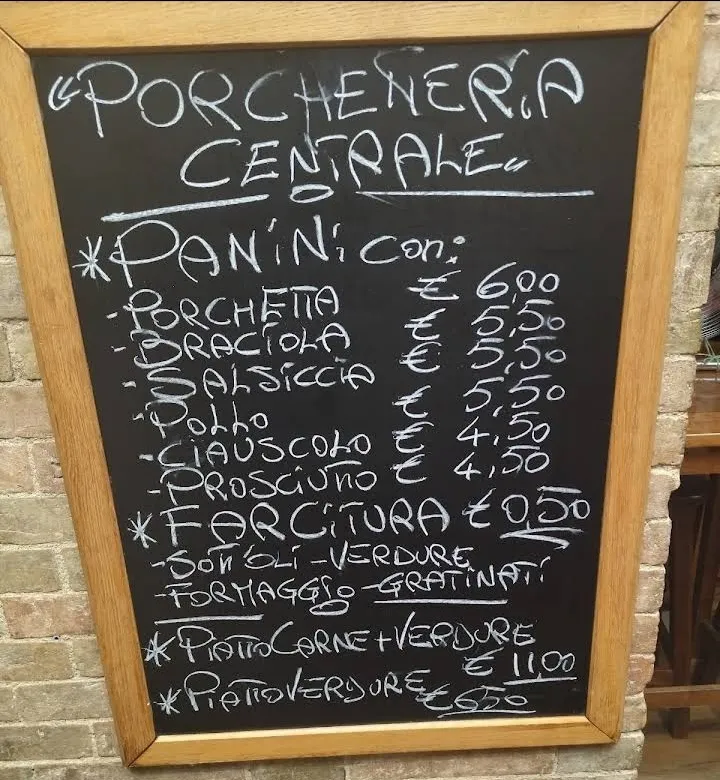 "PORCHETTERIA
CENTRALE"
*PANINI con:
-PORCHETTA € 6,00
-BRACIOLA € 5,50
-SALSICCIA € 5,50
-POLLO € 5,50
-CIAUSCOLO € 4,50
-PROSCIUTTO € 4,50
*FARCITURA € 0,50
-SOTT'OLI -VERDURE
-FORMAGGIO -GRATINATI
*PIATTO CARNE + VERDURE
€ 11,00
*PIATTO VERDURE € 6,50